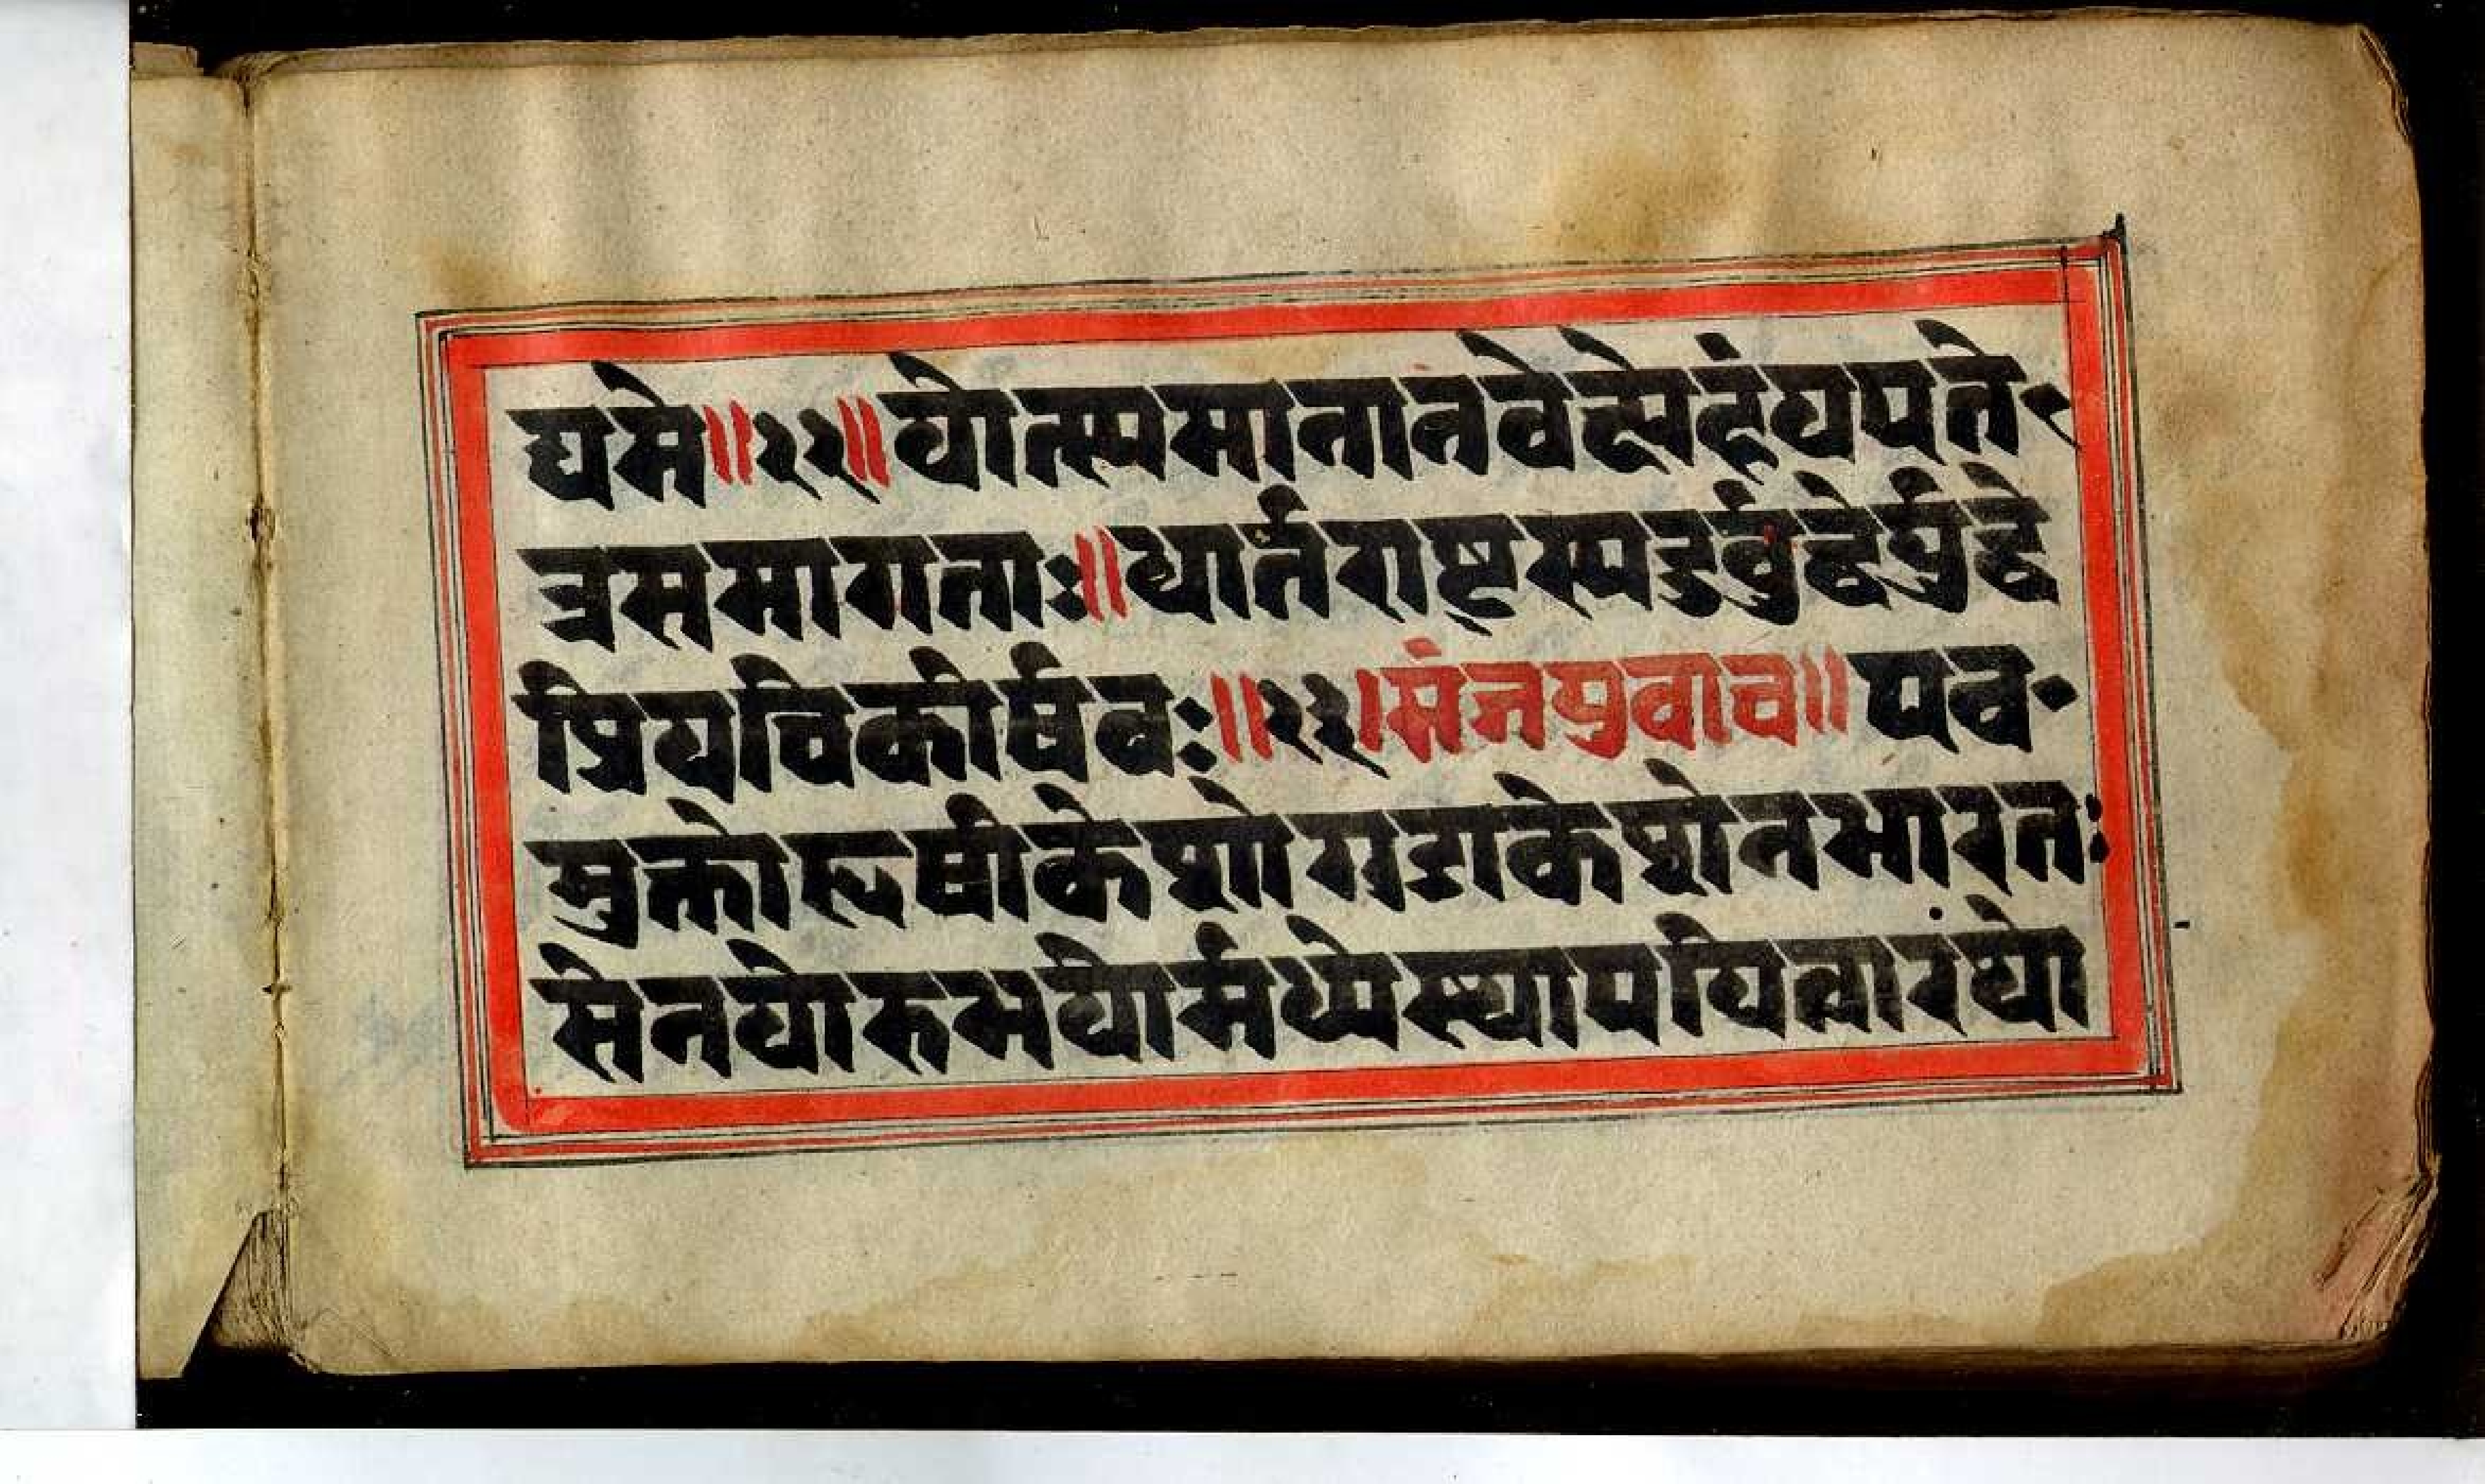 द्यमे॥२२॥योत्स्यमानानवेत्स्येहंययएते-
त्रसमागताः॥धार्तराष्ट्रस्यदुर्बुद्धेर्युद्धे
प्रियचिकीर्षवः॥२३।संजयउवाच॥एव-
मुक्तोहृषीकेशोगुडाकेशेनभारतः
सेनयोरुभयोर्मध्येस्थापयित्वारथो